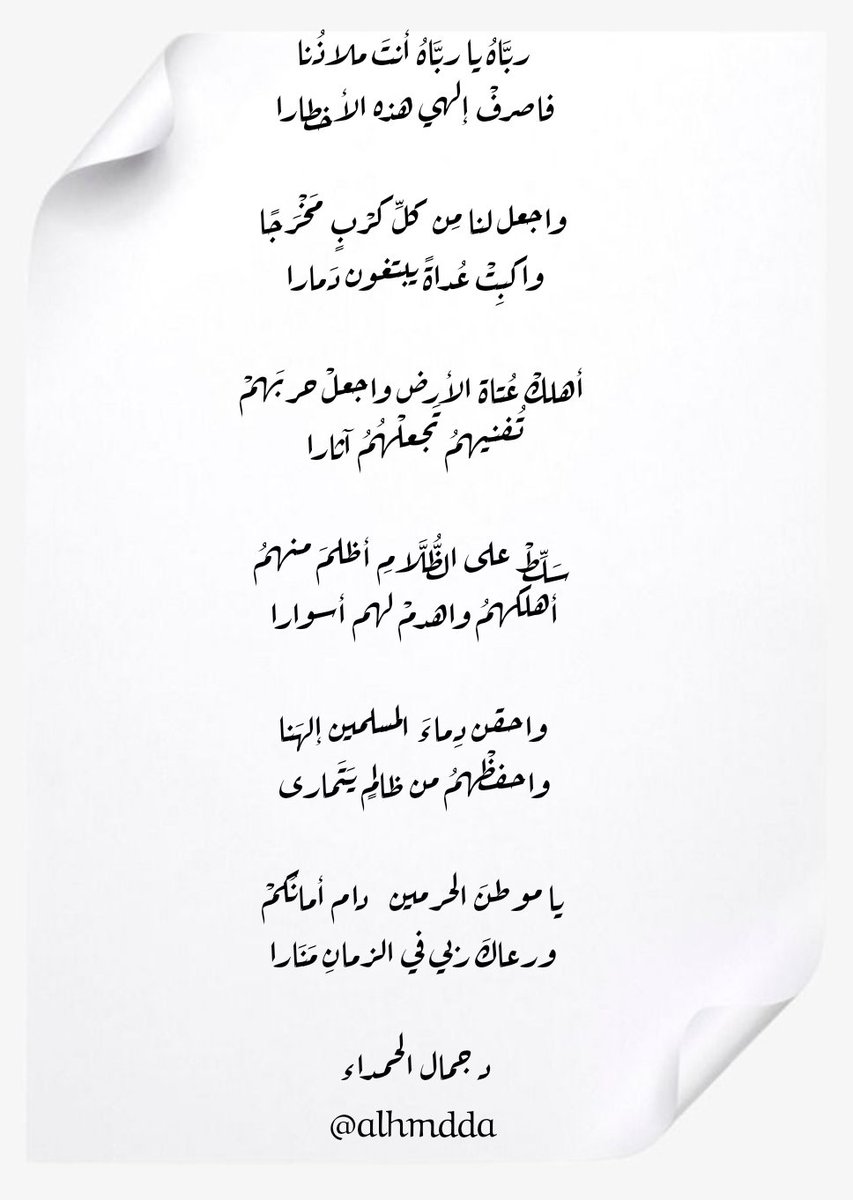 ربَّاهُ يا ربَّاهُ أنتَ ملاذُنا
فاصرفْ إلهي هذه الأخطارا
واجعل لنا مِن كلِّ كرْبٍ مَخْرَجًا
واكبِتْ عُداةً يبتغون دَمارا
أهلكْ عُتاة الأرض واجعلْ حربَهمْ
تُفنيهمُ تَجعلْهُمُ آثارا
سَلِّطْ على الظُّلَّامِ أظلمَ منهمُ
أهلكهمُ واهدمْ لهم أسوارا
واحقن دِماءَ المسلمين إلهَنا
واحفظْهمُ من ظالمٍ يَتَمارى
يا موطنَ الحرمين دام أمانُكمْ
ورعاكَ ربي في الزمانِ مَنَارا
د جمال الحمداء
@alhmdda